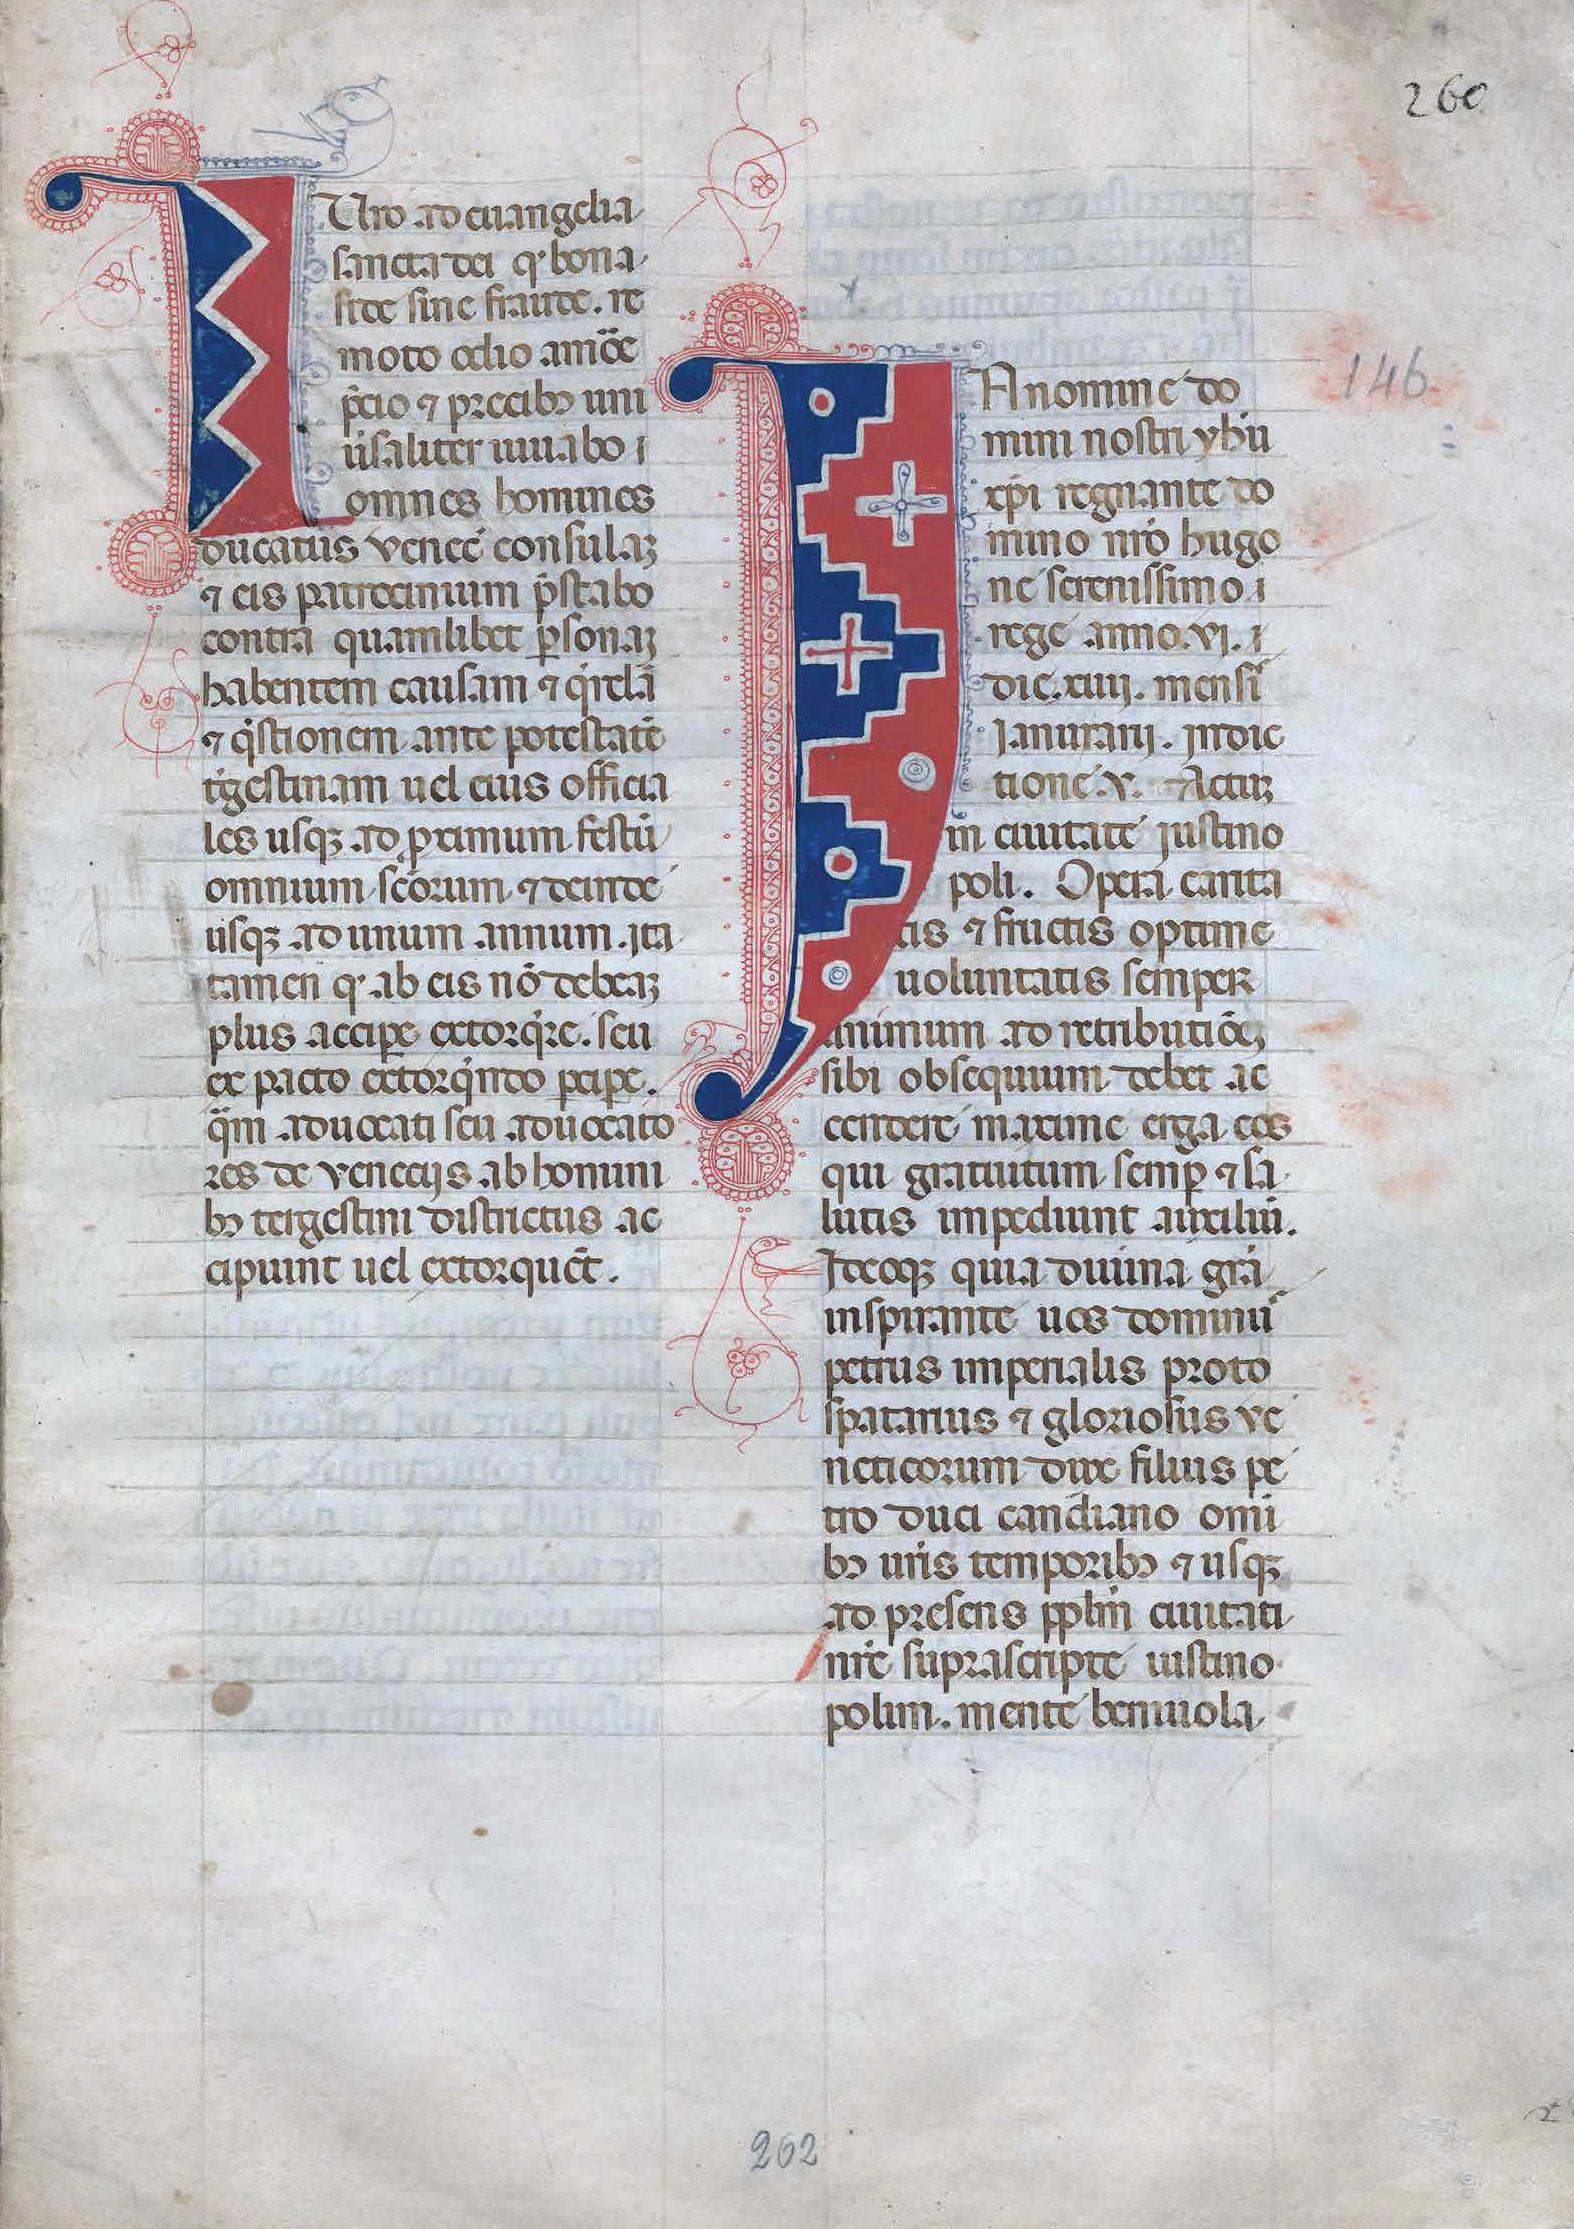 260
IUro ad euangelia
sancta dei q' bona
fide sine fraude. re
moto odio amőe
p̄cio ⁊ precibꝫ uni
ũsaliter iuuabo ı
omnes homines
ducatus venec̄ consulaꝫ
⁊ eis patrocinium p̄stabo
contra quamlibet ꝑsonaꝫ
habentem causam ⁊ q̓relā
⁊ q̓stionem ante potestatē
t̓gestinam uel eius officia
les usqꝫ ad ꝓximum festū
omnium sc̄orum ⁊ deinde
usqꝫ ad unum annum. ita
tamen q' ab eis nō debeaꝫ
plus accipe extorq̓re. seu
ex pacto extorq̓ndo ꝑcipe.
q̈m aduocati seu aduocato
res de veneciis ab homini
bꝫ tergestini districtus ac
cipiunt uel extorquēt.
146
IN nomine do
mini nostri yhū
xp̄i regnante do
mino nr̄o hugo
ne serenissimo ı
rege anno. vj. ı
die. xiiij. mensī
Januarij. indic
tione v. Actuꝫ
in ciuitate justino
poli. Opera carita
tis ⁊ fructis optime
uoluntatis semper
animum ad retributiōeꝫ
sibi obsequium debet ac
cendere maxime erga eos
qui gratuitum semꝑ ⁊ sa
lutis impediunt auxiliū.
Ideoqꝫ quia diuina grā
inspirante uos dominū
petrus imperialis proto
spatarius ⁊ gloriosus ve
neticorum dux filius pe
tro duci candiano omī
bꝫ uris̄ temporibꝫ ⁊ usqꝫ
ad presens pplm̄ ciuitati
nr̄e suprascripte iustino
polim. mente beniuola
262